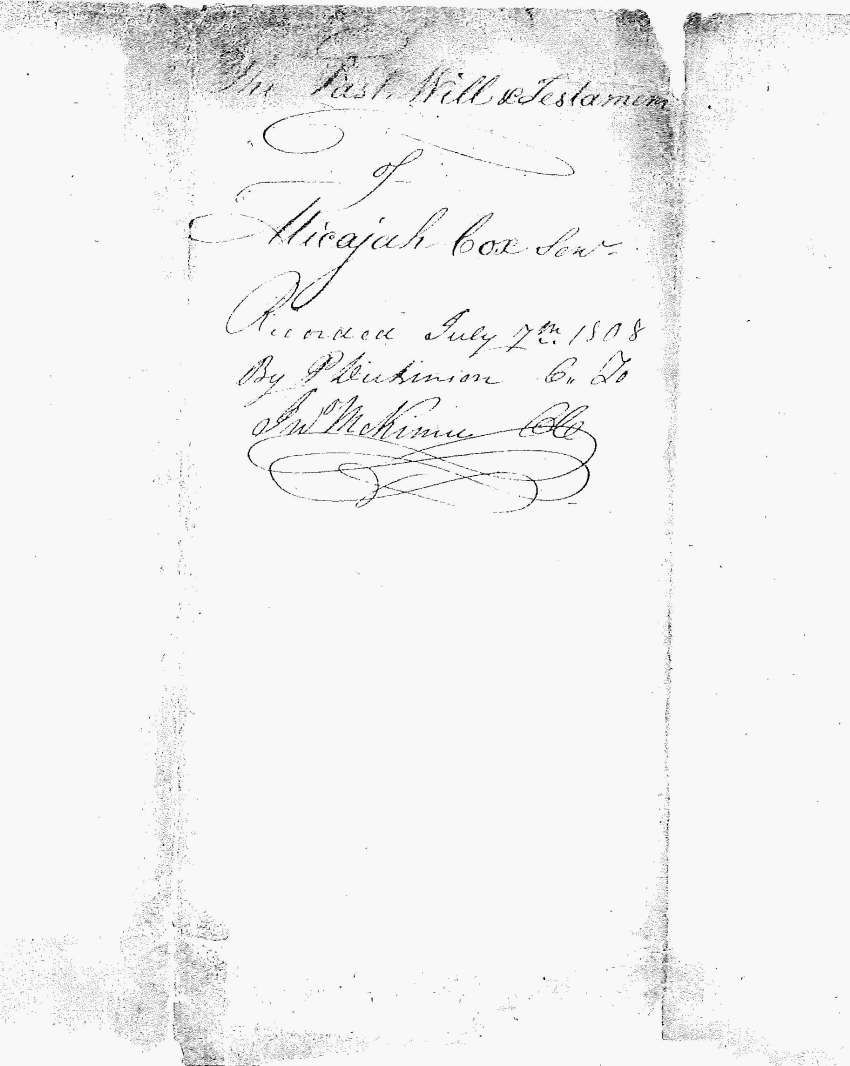 The Last Will & Testament
of
Micajah Cox Senr
Recorded July 7th 1808
By P Dickinson C. To
Jno McKinnie CC